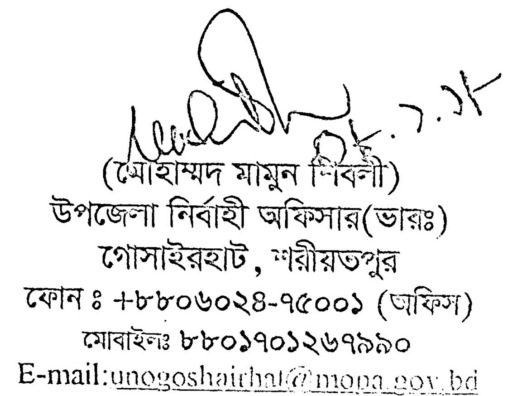 (মোহাম্মদ মামুন শিবলী)
উপজেলা নির্বাহী অফিসার(ভারঃ)
গোসাইরহাট, শরীয়তপুর
ফোন ঃ +৮৮০৬০২৪-৭৫০০১ (অফিস)
মোবাইলঃ ৮৮০১৭০১২৬৭৯৯০
E-mail:unogoshairhat@mopa.gov.bd